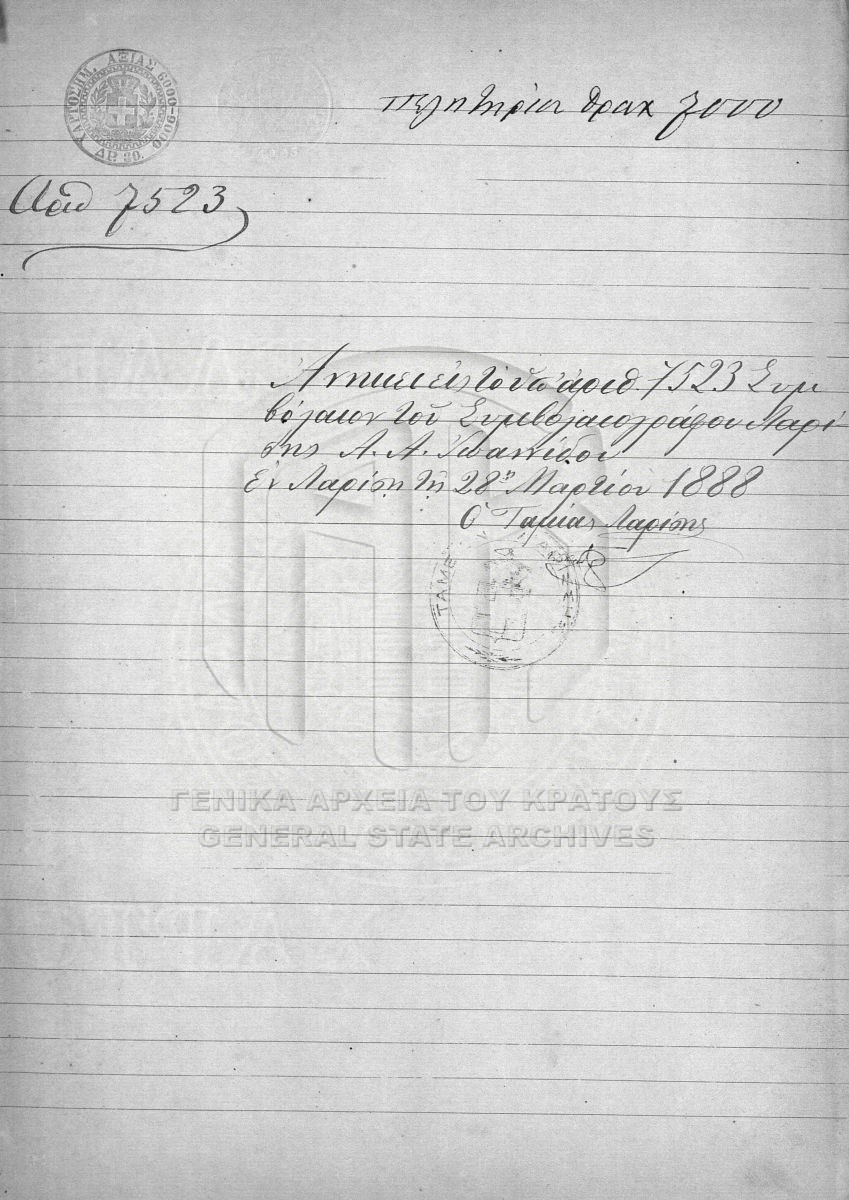 ΧΑΡΤΟΣΗΜ. ΑΞΙΑΣ 6000-9000
ΔΡ.
πωλητήριον δραχ 7000
Αριθ 7523
Ανήκει εις το υπ' αριθ 7523 Συμ
βόλαιον του Συμβολαιογράφου Λαρί
σης Α. Α. Ιωαννίδου
Εν Λαρίση τη 28η Μαρτίου 1888
Ο Ταμίας Λαρίσης
ΓΕΝΙΚΑ ΑΡΧΕΙΑ ΤΟΥ ΚΡΑΤΟΥΣ
GENERAL STATE ARCHIVES